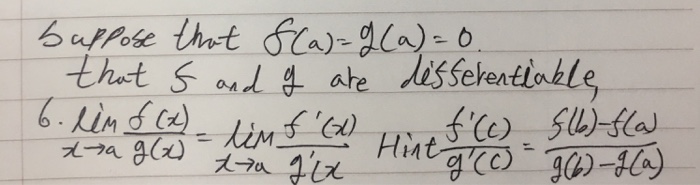 Suppose that f(a)=g(a)=0.
that f and g are differentiable,
6. lim x→a f(x)/g(x) = lim x→a f'(x)/g'(x Hint f'(c)/g'(c) = f(b)-f(a)/g(b)-g(a)